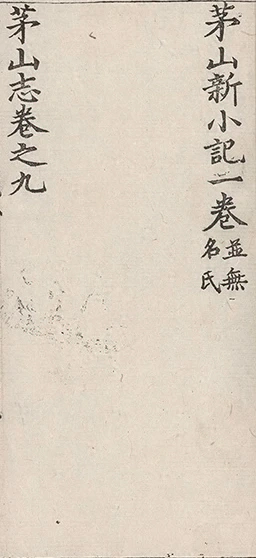 茅山新小記一卷並無名氏
茅山志卷之九